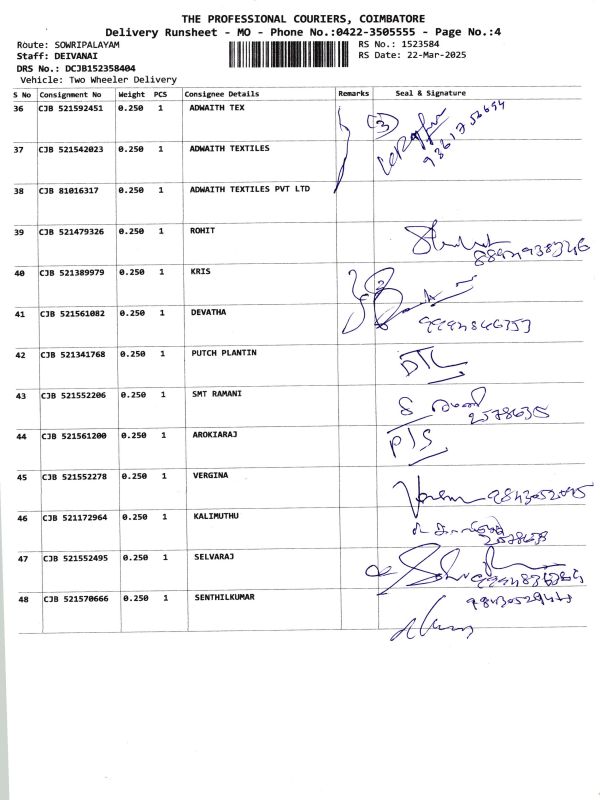 THE PROFESSIONAL COURIERS, COIMBATORE
Delivery Runsheet - MO - Phone No.:0422-3505555 - Page No.:4
Route: SOWRIPALAYAM RS No.: 1523584
Staff: DEIVANAI RS Date: 22-Mar-2025
DRS No.: DCJB152358404
Vehicle: Two Wheeler Delivery
S No Consignment No Weight PCS Consignee Details Remarks Seal & Signature
36 CJB 521592451 0.250 1 ADWAITH TEX (3)
37 CJB 521542023 0.250 1 ADWAITH TEXTILES
38 CJB 81016317 0.250 1 ADWAITH TEXTILES PVT LTD
39 CJB 521479326 0.250 1 ROHIT
40 CJB 521389979 0.250 1 KRIS
41 CJB 521561082 0.250 1 DEVATHA
42 CJB 521341768 0.250 1 PUTCH PLANTIN DTL
43 CJB 521552206 0.250 1 SMT RAMANI 2578635
44 CJB 521561200 0.250 1 AROKIARAJ PTS
45 CJB 521552278 0.250 1 VERGINA
46 CJB 521172964 0.250 1 KALIMUTHU
47 CJB 521552495 0.250 1 SELVARAJ
48 CJB 521570666 0.250 1 SENTHILKUMAR